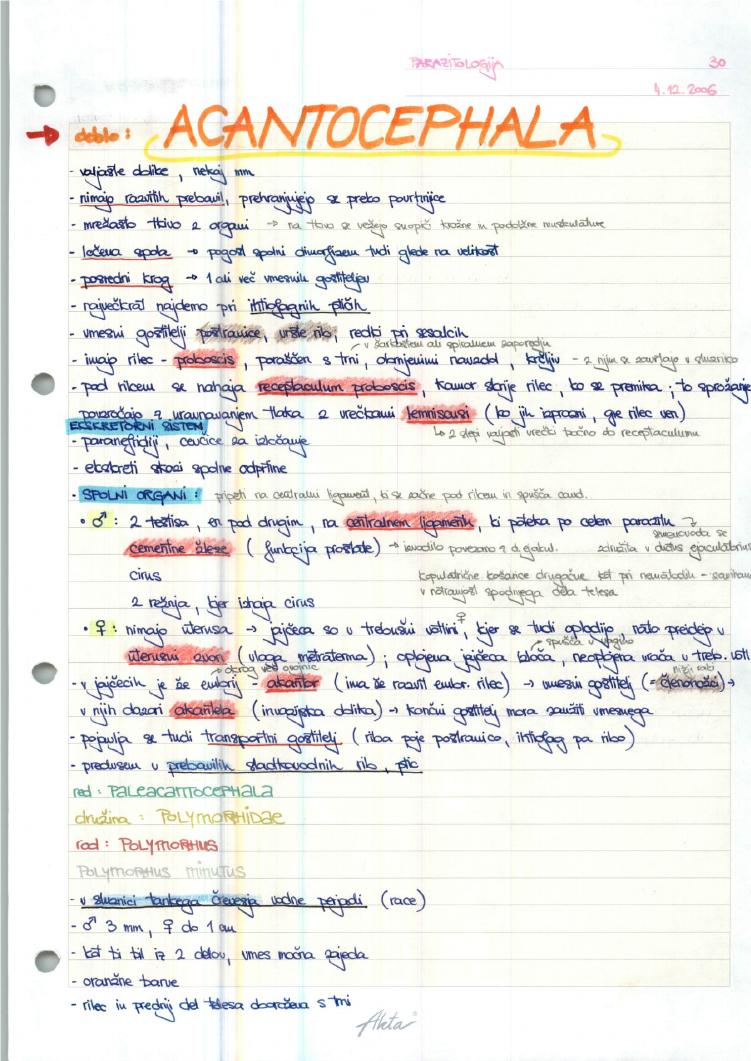 PARAZITOLOGIJA 30
4.12.2006
deblo: ACANTOCEPHALA
- valjaste oblike, nekaj mm
- nimajo razvitih prebavil, prehranjujejo se preko povrhnjice
- mrežasto tkivo z organi → na tkivo se vežejo snopiči krožne in podolžne muskulature
- ločena spola → pogost spolni dimorfizem tudi glede na velikost
- posredni krog → 1 ali več vmesnih gostiteljev
- največkrat najdemo pri ihtiofagnih ptičih
- vmesni gostitelji postranice, vrste rib, redki pri sesalcih
v žarkastem ali spiralnem zaporedju
- imajo rilec - proboscis, poraščen s trni, obrnjenimi navzdol, kavljiv - z njim se zavrtajo v sluznico
- pod rilcem se nahaja receptaculum proboscis, kamor skrije rilec, ko se premika; to sprožanje
povzročajo z uravnavanjem tlaka z vrečkami lemniscusi (ko jih izprazni, gre rilec ven)
↳ 2 slepi valjasti vrečki bočno do receptaculuma
EKSKRETORNI SISTEM
- paranefridiji, cevčice za izločanje
- ekskreti skozi spolne odprtine
- SPOLNI ORGANI: pripeti na centralni ligament, ki se začne pod rilcem in spušča caud.
• ♂: 2 testisa, en pod drugim, na centralnem ligamentu, ki poteka po celem parazitu →
semenovoda se
cementne žleze (funkcija prostate) → izvodilo povezano z d. ejakul. združita v ductus ejaculatorius
cirus kopulatorične košarice drugačne kot pri nematodih -
v notranjosti spodnjega dela telesa
2 režnja, kjer izhaja cirus
• ♀: nimajo uterusa → jajčeca so v trebušni votlini ♀, kjer se tudi oplodijo, nato preidejo v
→ spušča v vagino
uterusni zvon (vloga metraterma); oplojena jajčeca izloča, neoplojena vrača v treb. votl
→ obdaja več ovojnic nižji raki
- v jajčecih je že embrij - akantor (ima že razvit embr. rilec) → vmesni gostitelj (= členonožci) →
v njih dozori akantela (invazijska oblika) → končni gostitelj mora zaužiti vmesnega
- pojavlja se tudi transportni gostitelj (riba poje postranico, ihtiofag pa ribo)
- predvsem v prebavilih sladkovodnih rib, ptic
red: PALEACANTOCEPHALA
družina: POLYMORPHIDAE
rod: POLYMORPHUS
POLYMORPHUS MINUTUS
- v sluznici tankega črevesja vodne perjadi (race)
- ♂ 3 mm, ♀ do 1 cm
- kot bi bil iz 2 delov, vmes močna zajeda
- oranžne barve
- rilec in prednji del telesa obdržena s trni
Akta